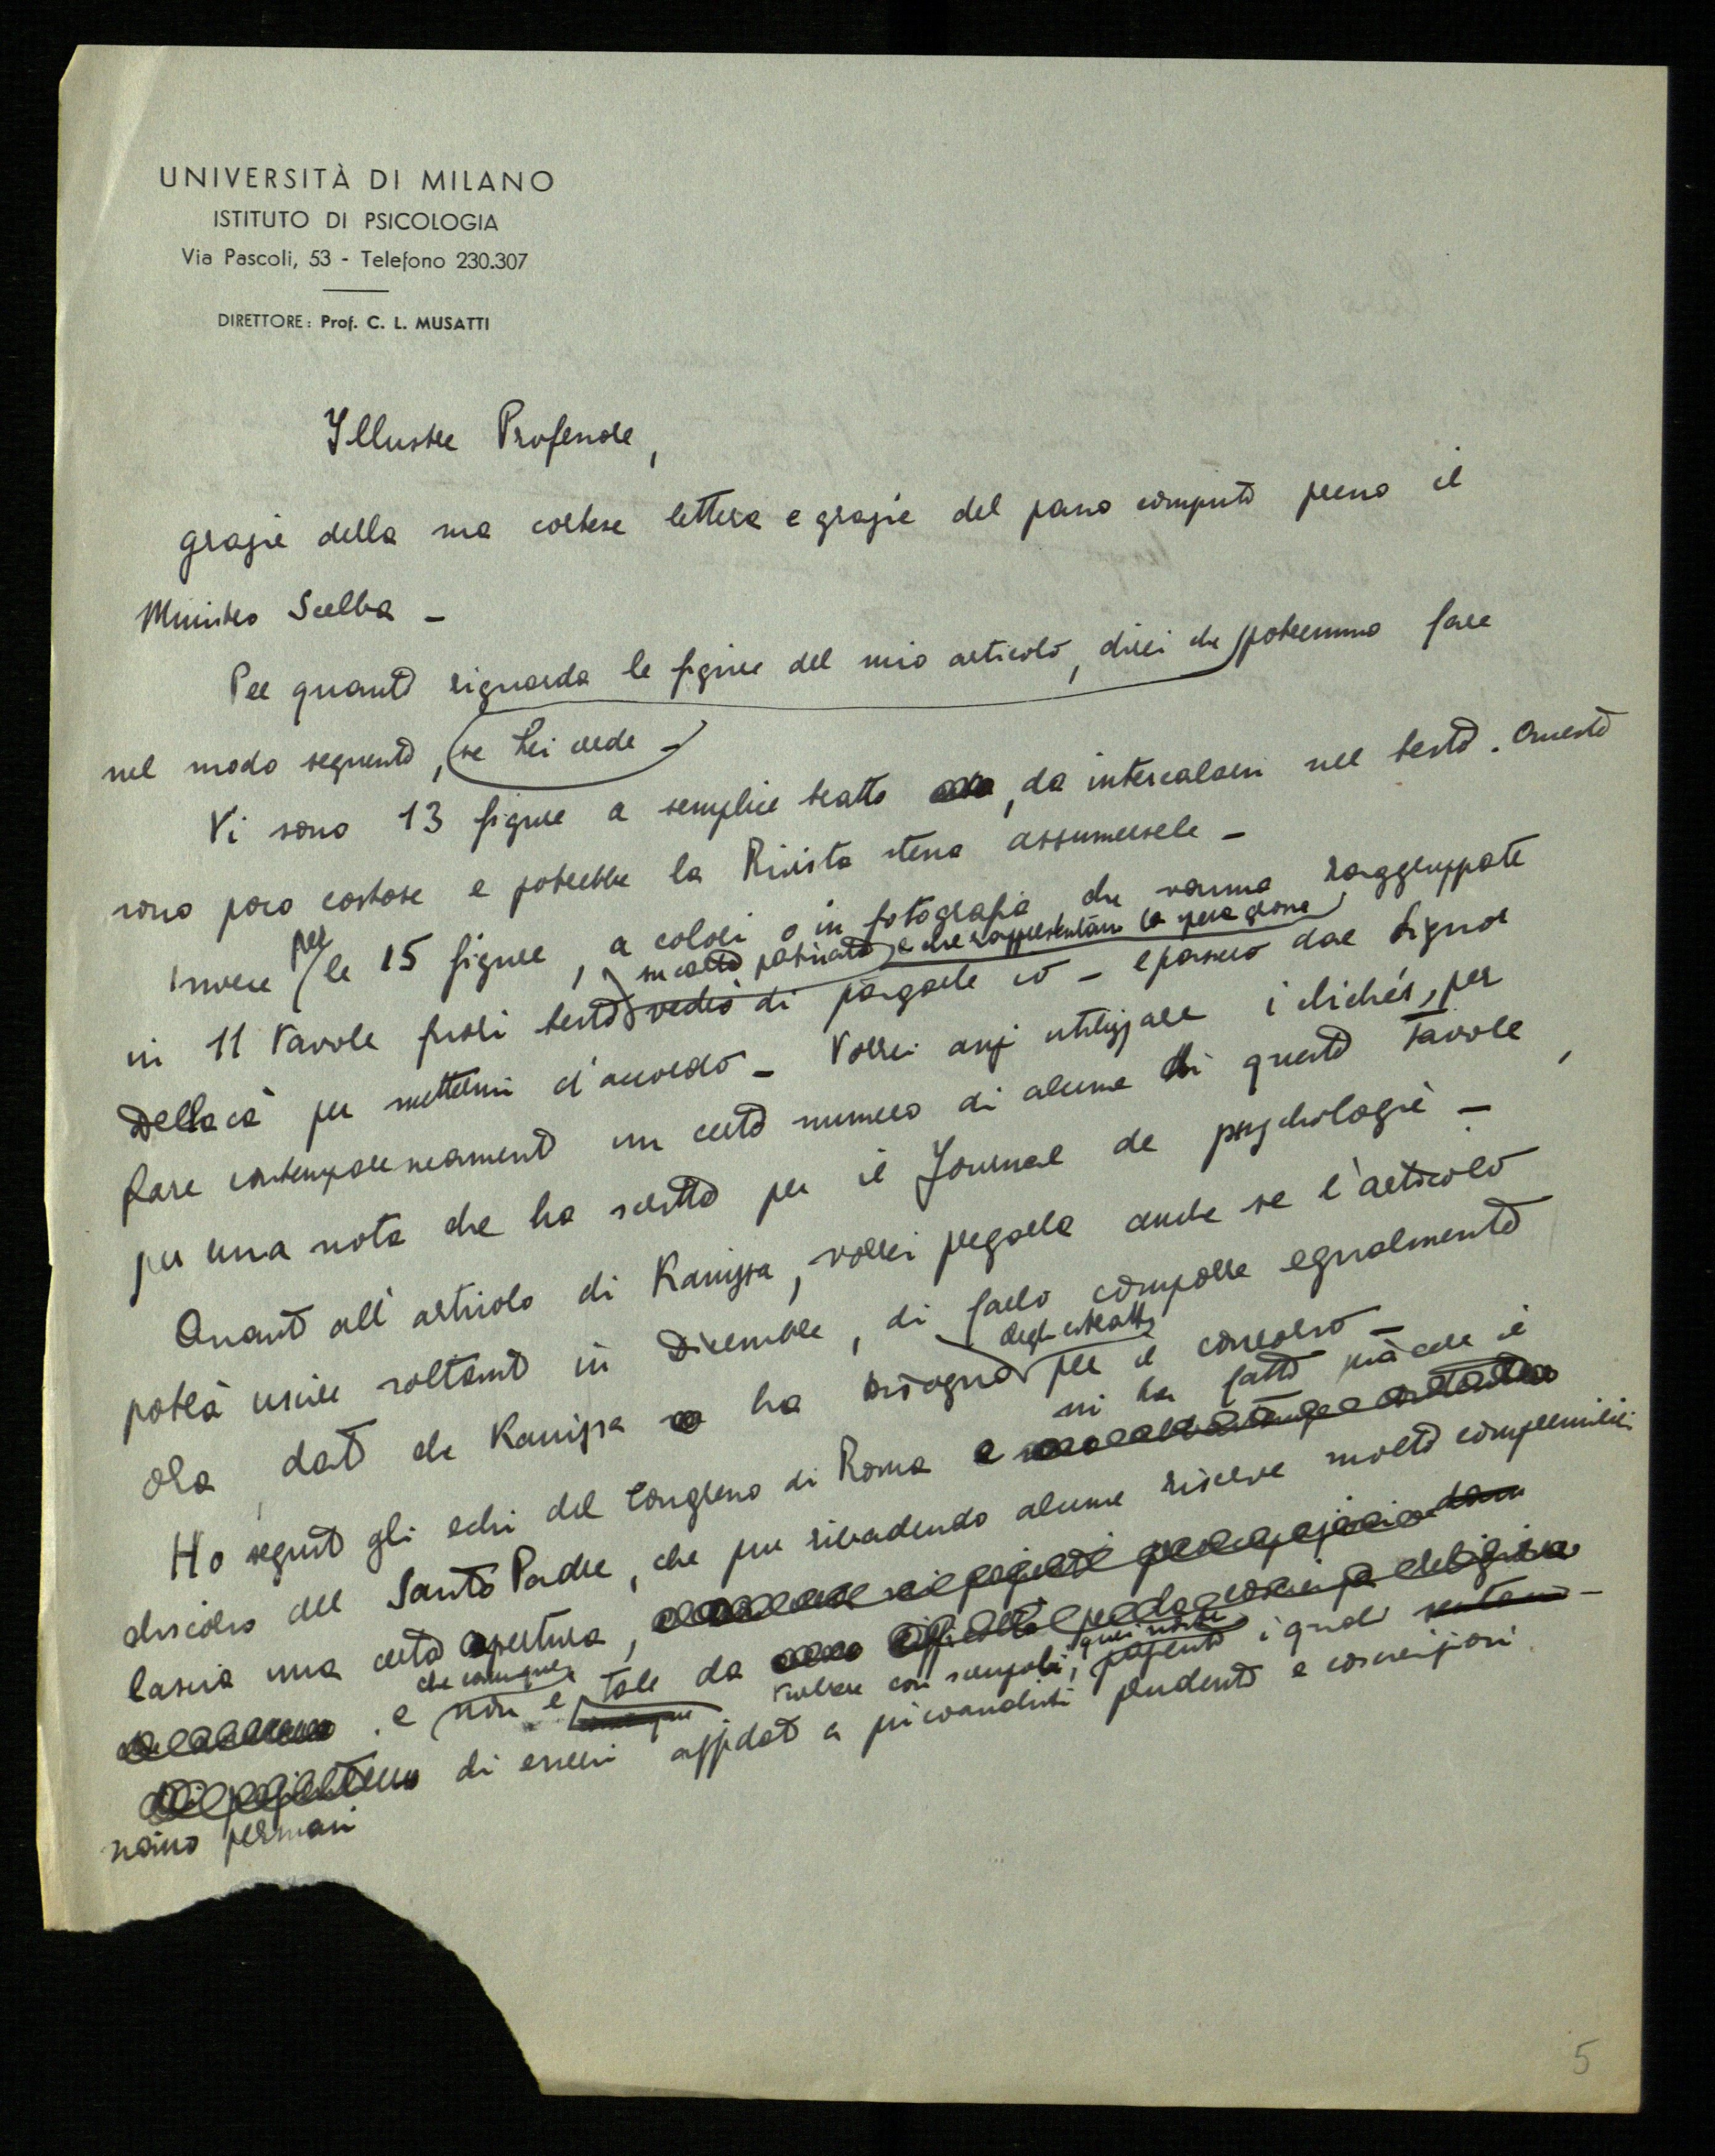 UNIVERSITÀ DI MILANO
ISTITUTO DI PSICOLOGIA
Via Pascoli, 53 - Telefono 230.307
DIRETTORE: Prof. C. L. MUSATTI
Illustre Professore,
grazie della sua cortese lettera e grazie del passo compiuto presso il
Ministro Scelba -
Per quanto riguarda le figure del mio articolo, direi che potremmo fare
nel modo seguente, se Lei crede -
Vi sono 13 figure a semplice tratto, da intercalarsi nel testo. Queste
sono poco costose e potrebbe la Rivista stessa assumersele -
Invece per le 15 figure, a colori o in fotografia che vanno raggruppate
su carta patinata e che rappresentano la spesa grossa
in 11 Tavole fuori testo vedrò di pagarle io - e passerò dal Signor
Dellacà per mettermi d'accordo - Vorrei anzi utilizzare i clichés, per
fare contemporaneamente un certo numero di alcune di queste Tavole,
per una nota che ho scritto per il Journal de psychologie -
Quanto all'articolo di Kanizsa, vorrei pregarla anche se l'articolo
potrà uscire soltanto in Dicembre, di farlo comporre egualmente
ora, dato che Kanizsa ha bisogno degli estratti per il concorso -
Ho seguito gli echi del Congresso di Roma e mi ha fatto piacere il
discorso del Santo Padre, che pur ribadendo alcune riserve molto comprensibili
lascia una certa apertura,
e che comunque non è tale da turbare con scrupoli, quei nostri pazienti i quali
di essersi affidati a psicoanalisti prudenti e coscienziosi
siano persuasi
5